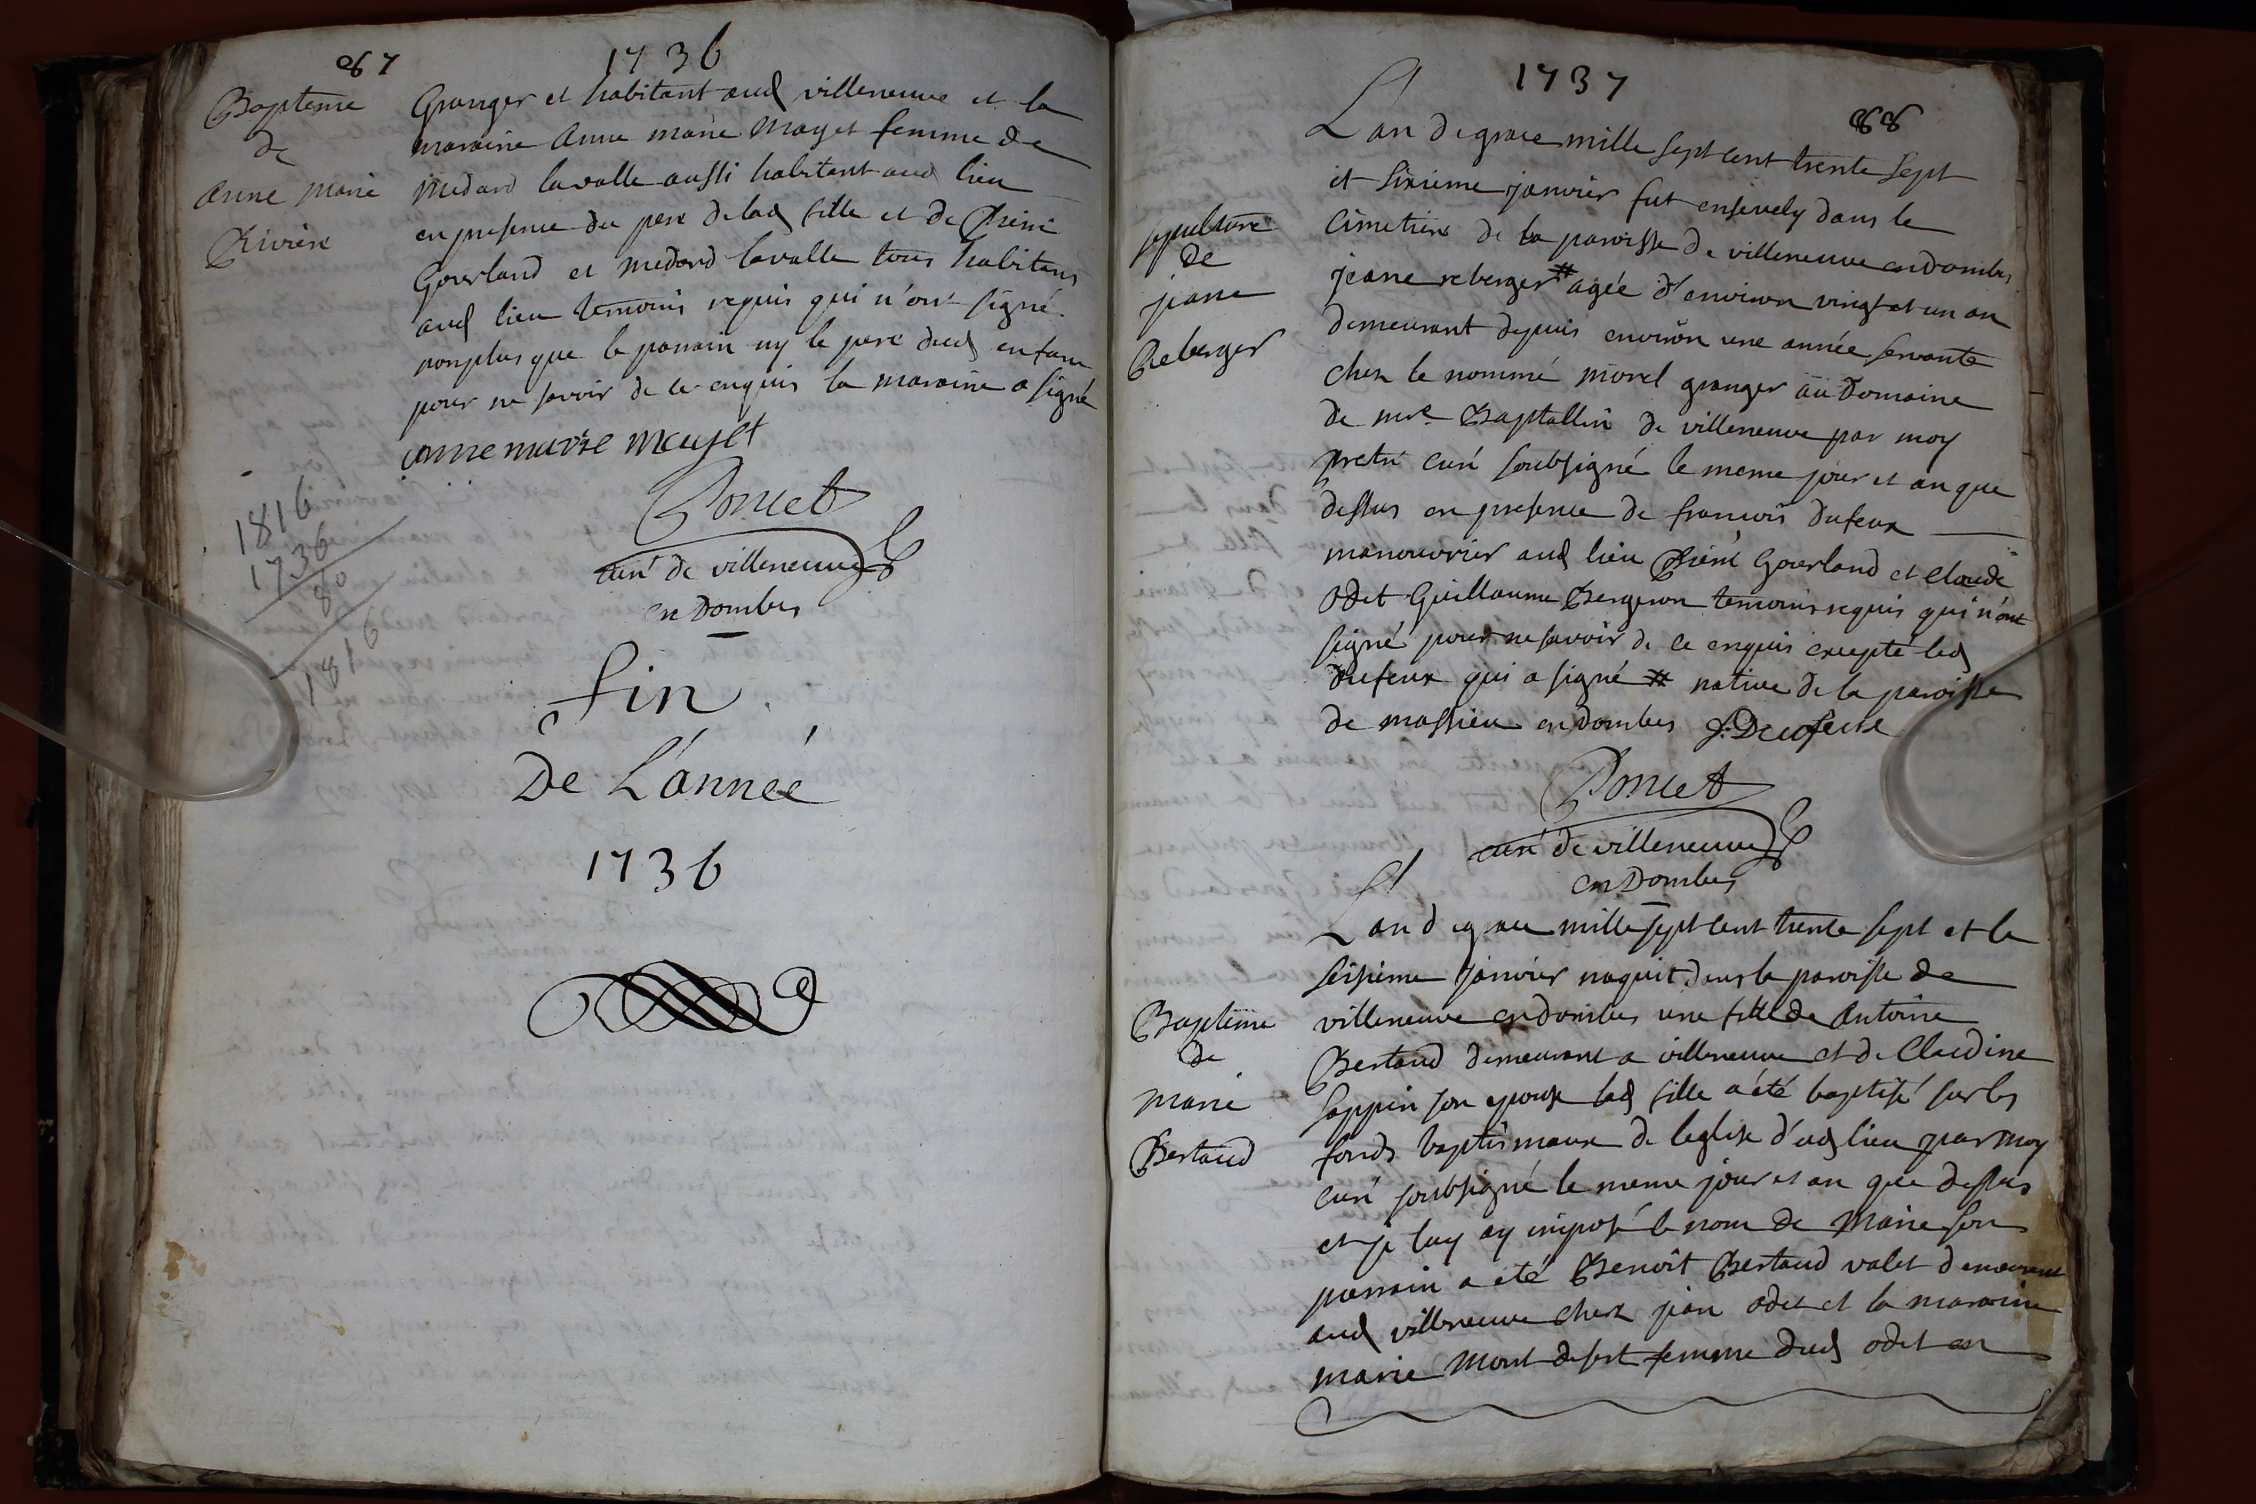 867
1736
Bapteme
de
anne marie
Riviere
Granger et habitant aud villeneuve et la
maraine anne marie mayet femme de
medard lavalle aussi habitant aud lieu
en presence du pere de lad fille et de
Gourland et medard lavalle tous habitans
aud lieu temoins requis qui n'ont signé
nonplus que le parain ny le pere dud enfant
pour ne savoir de ce enquis la maraine a signé
anne marie mayet
Poncet
curé de villeneuve
en Dombes
1816
1736
80
1816
fin
De L'année
1736
1737
868
sepulture
de
jeane
Reberger
L'an de grace mille sept cent trente sept
et sixieme janvier fut ensevely dans le
cimetiere de la paroisse de villeneuve en dombes
jeane reberger # agée d'environ vingt et un an
demeurant depuis environ une année servante
chez le nommé morel granger au Domaine
de mre Baptallin de villeneuve par moy
pretre curé soubsigné le meme jour et an que
dessus en presence de francois dufeux
manouvrier aud lieu Gourland et claude
odet Guillaume Bergeron temoins requis qui n'ont
signé pour ne savoir de ce enquis excepté led
dufeux qui a signé # native de la paroisse
de massieu en dombes f: Dufeux
Poncet
curé de villeneuve
en Dombes
Bapteme
de
marie
Bertaud
L'an de grace mille sept cent trente sept et le
seisieme janvier naquit dans la paroisse de
villeneuve en dombes une fille de antoine
Bertaud demeurant a villeneuve et de Claudine
sappin son epouse lad fille a été baptisé sur les
fonds baptismaux de l'eglise d'ud lieu par moy
curé soubsigné le meme jour et an que dessus
et je luy ay imposé le nom de marie son
parrain a été Benoit Bertaud valet demeurant
aud villeneuve chez jean odet et la maraine
marie Mont defert femme dud odet en